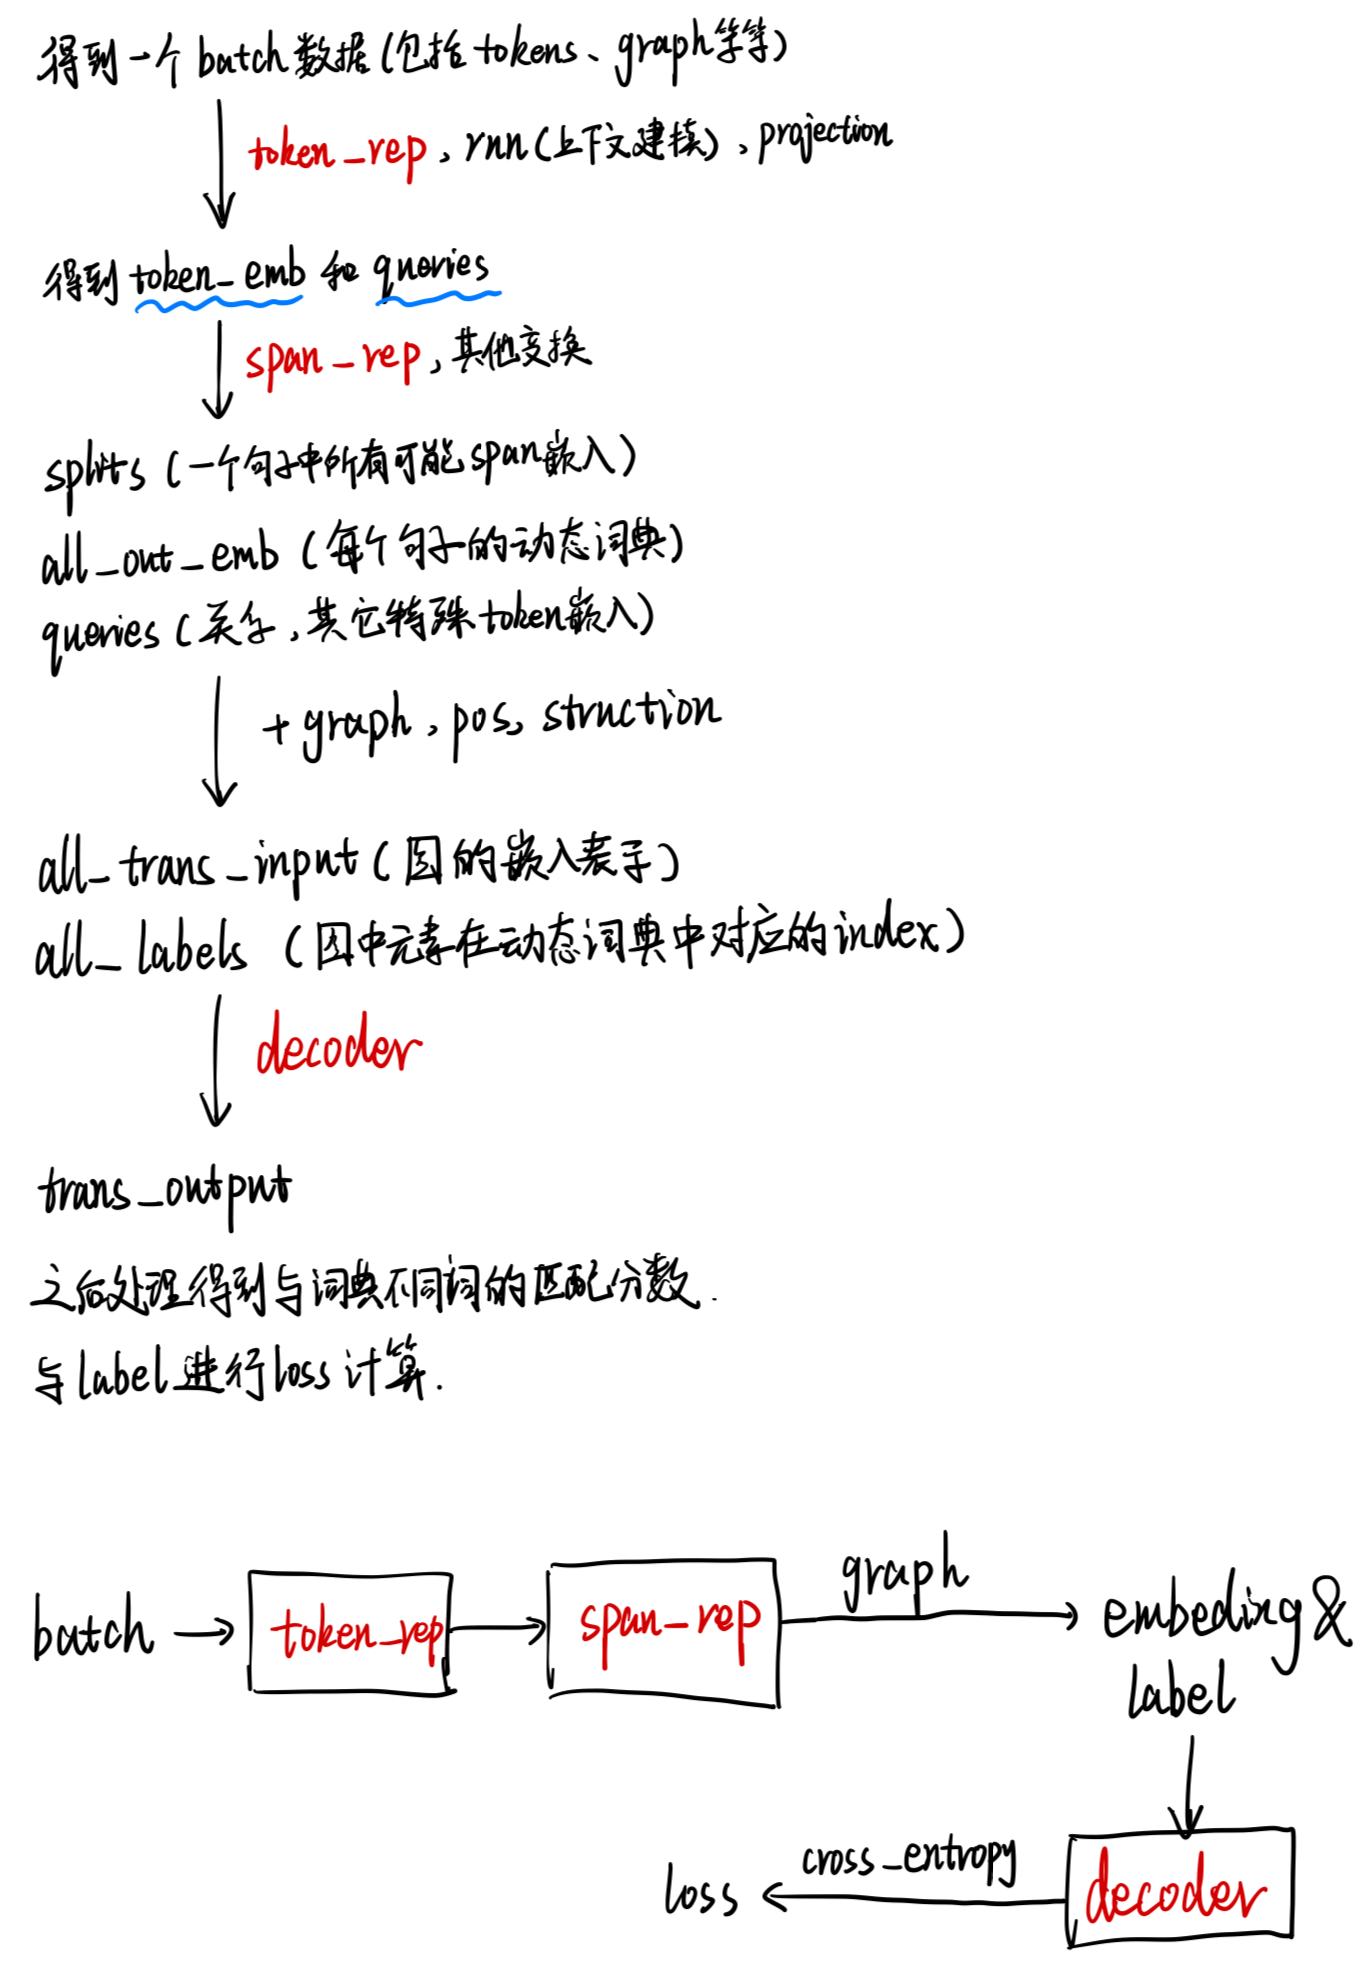 得到一个batch数据(包括tokens、graph等等)
token_rep、rnn(上下文建模)、projection
得到token_emb和queries
span_rep,其他变换
splits(一个句子中所有可能span嵌入)
all_out_emb(每个句子的动态词典)
queries(关系,其它特殊token嵌入)
+graph、pos、struction
all_trans_input(图的嵌入表示)
all_labels(图中元素在动态词典中对应的index)
decoder
trans_output
之后处理得到与词典不同词的匹配分数.
与label进行loss计算.
graph
batch → token_rep → span_rep → embeding&
label
cross_entropy
loss ← decoder